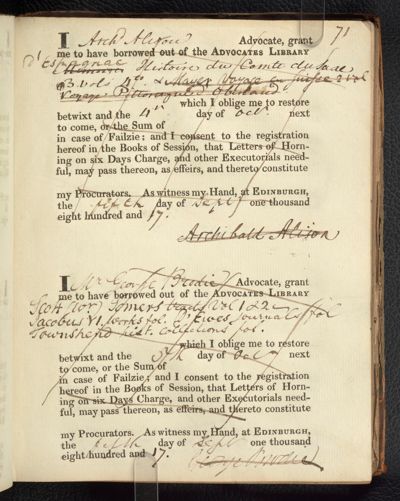 71
I Arch.d Alison Advocate, grant
me to have borrowed out of the ADVOCATES LIBRARY
D'Espagnac Histoire du Comte de Saxe
3 vols 4to. & Mayer Voyage en Suisse 2 vol
Voyage Pittoresque
which I oblige me to restore
betwixt and the 4th day of Octr. next
to come, or the Sum of
in case of Failzie; and I consent to the registration
hereof in the Books of Session, that Letters of Horn-
ing on six Days Charge, and other Executorials need-
ful, may pass thereon, as effeirs, and thereto constitute
my Procurators. As witness my Hand, at EDINBURGH,
the fifth day of Septr one thousand
eight hundred and 17.
Archibald Alison
I Mr George Brodie Advocate, grant
me to have borrowed out of the ADVOCATES LIBRARY
Scott (Sir) Somers tracts Vol 1 & 2
Jacobus VI works fol. D'Ewes Journal fol
Townshend hist. Collections fol.
which I oblige me to restore
betwixt and the 5th day of Octr next
to come, or the Sum of
in case of Failzie; and I consent to the registration
hereof in the Books of Session, that Letters of Horn-
ing on six Days Charge, and other Executorials need-
ful, may pass thereon, as effeirs, and thereto constitute
my Procurators. As witness my Hand, at EDINBURGH,
the fifth day of Septr one thousand
eight hundred and 17.
George Brodie